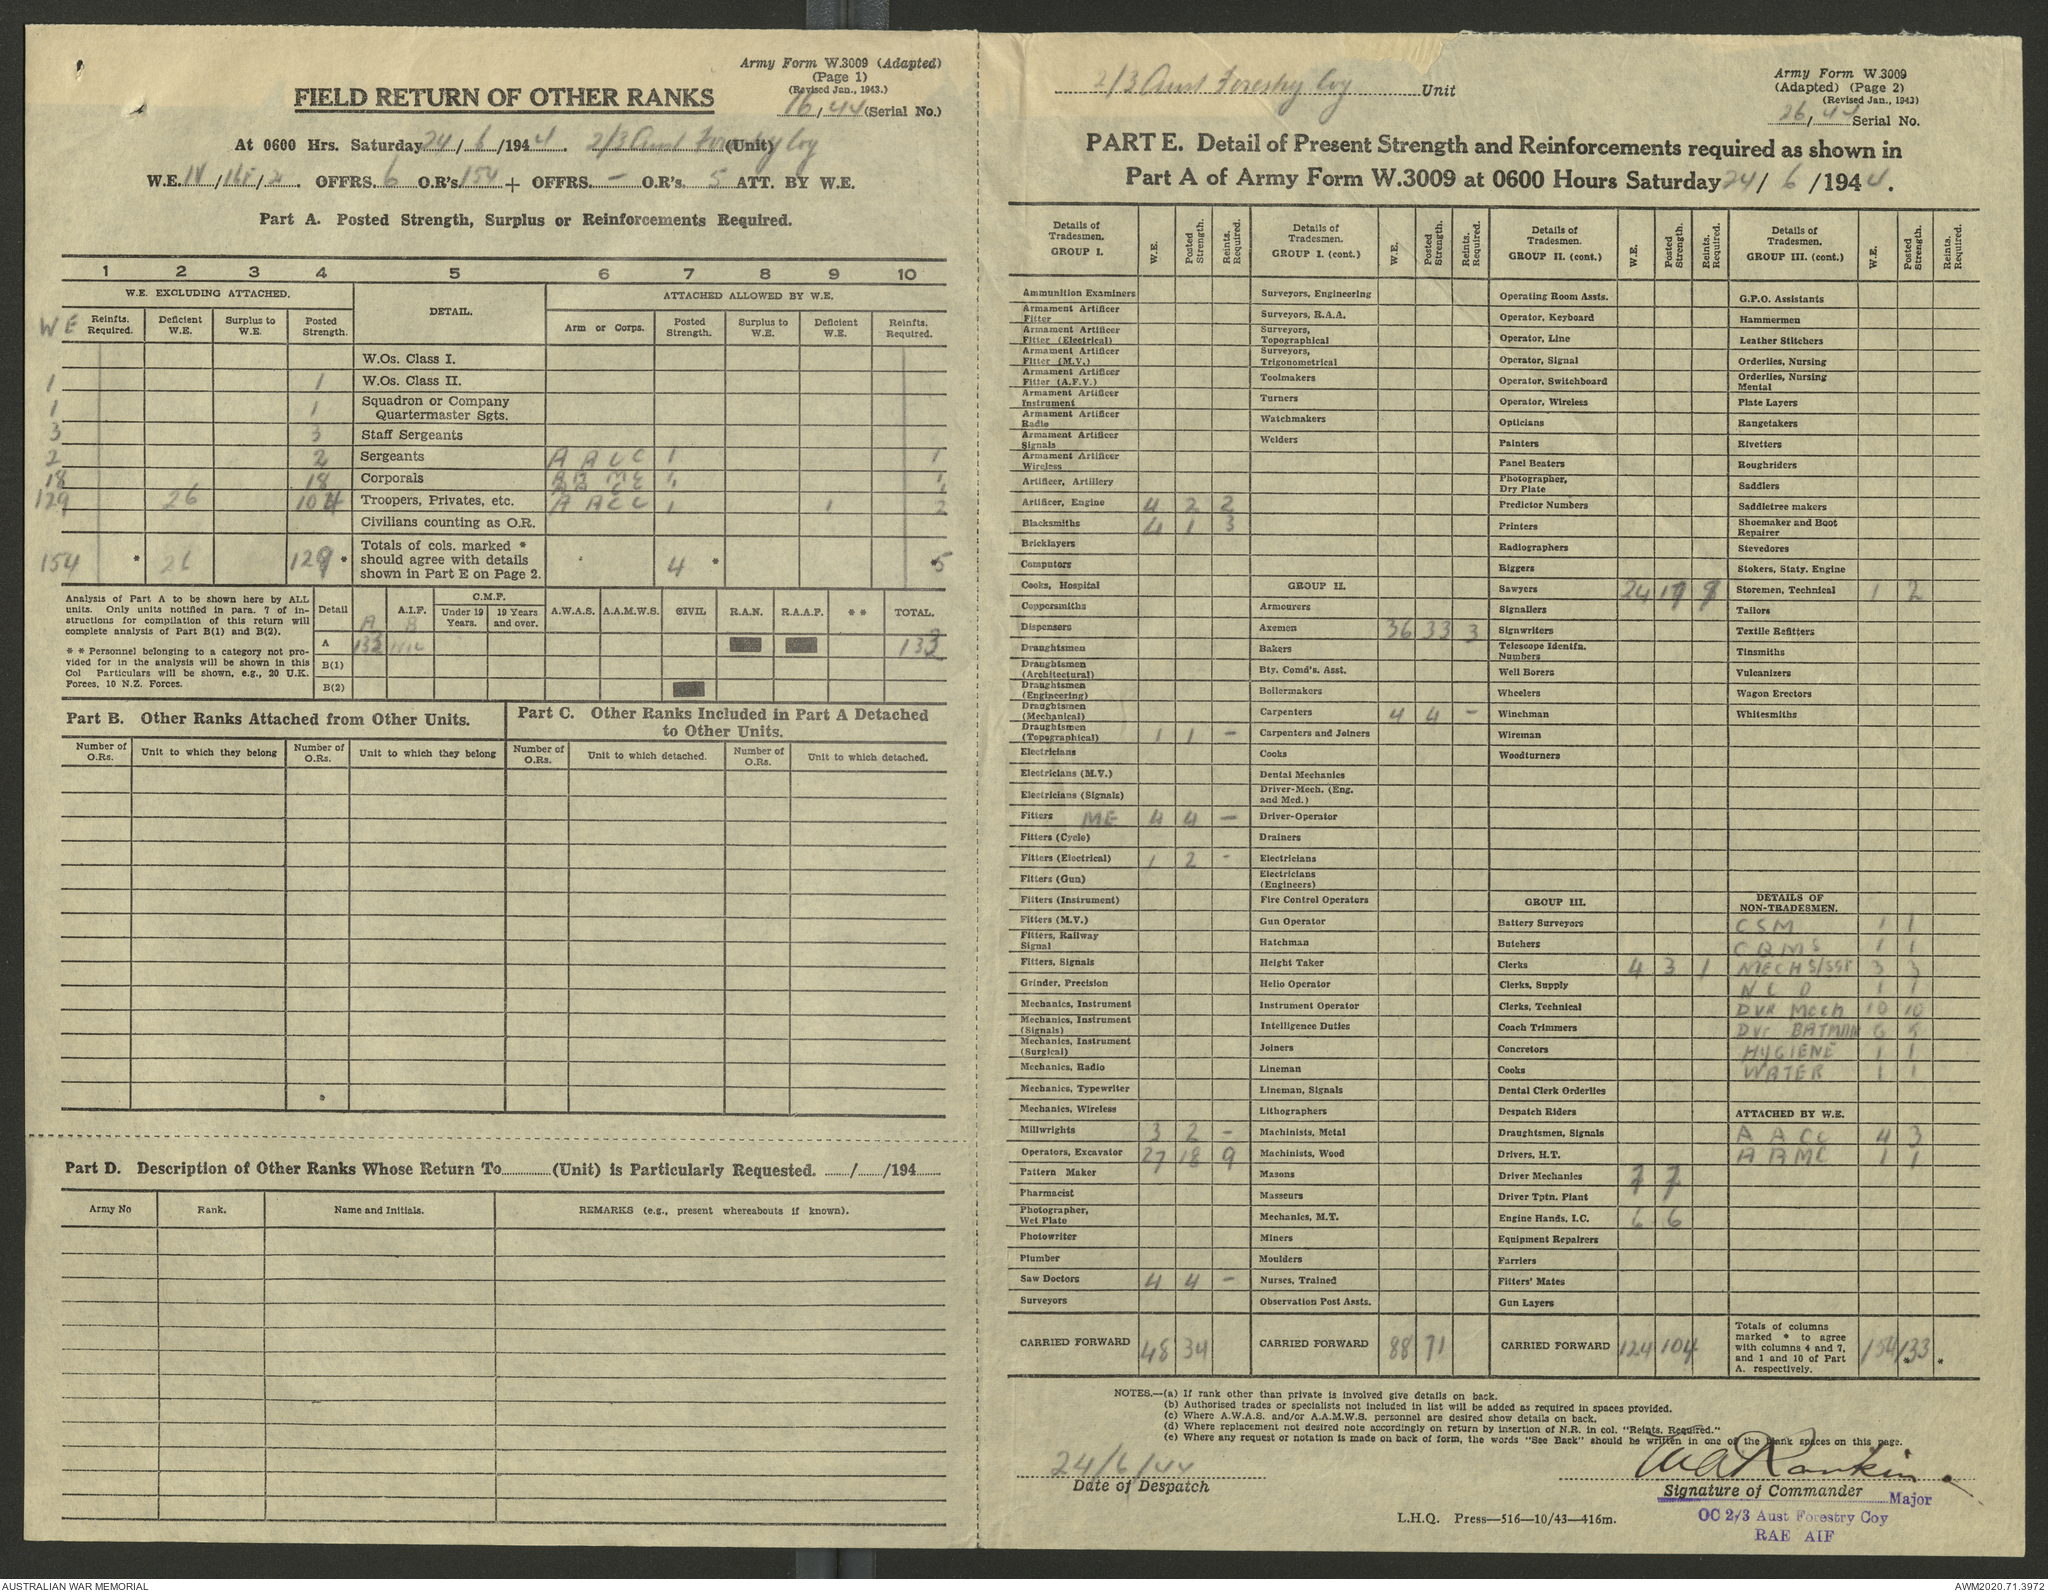 Army Form W.3009 (Adapted)
(Page 1)
(Revised Jan., 1943.)
16/44 (Serial No.)
FIELD RETURN OF OTHER RANKS
At 0600 Hrs. Saturday 24/6/1944. 2/3 Aust Forestry Coy (Unit)
W.E. IV/16F/2. OFFRS. 6 O.R's 154 + OFFRS. – O.R's. 5 ATT. BY W.E.
Part A. Posted Strength, Surplus or Reinforcements Required.
1 2 3 4 5 6 7 8 9 10
W.E. EXCLUDING ATTACHED. DETAIL. ATTACHED ALLOWED BY W.E.
WE Reinfts. Required. Deficient W.E. Surplus to W.E. Posted Strength. Arm or Corps. Posted Strength. Surplus to W.E. Deficient W.E. Reinfts. Required.
W.Os. Class I.
1 1 W.Os. Class II.
1 1 Squadron or Company Quartermaster Sgts.
3 3 Staff Sergeants
2 2 Sergeants A A C C 1 1
18 18 Corporals A A M C 1 1
129 26 104 Troopers, Privates, etc. A A C C 1 1 2
Civilians counting as O.R.
154 * 26 129 * Totals of cols. marked * should agree with details shown in Part E on Page 2. 4 * * 5
Analysis of Part A to be shown here by ALL units. Only units notified in para. 7 of instructions for compilation of this return will complete analysis of Part B(1) and B(2).
* * Personnel belonging to a category not provided for in the analysis will be shown in this Col Particulars will be shown, e.g., 20 U.K. Forces, 10 N.Z. Forces.
Detail A A.I.F. B C.M.F. Under 19 Years. 19 Years and over. A.W.A.S. A.A.M.W.S. CIVIL R.A.N. R.A.A.F. * * TOTAL.
A 133 NIL 133
B(1)
B(2)
Part B. Other Ranks Attached from Other Units.
Part C. Other Ranks Included in Part A Detached to Other Units.
Number of O.Rs. Unit to which they belong Number of O.Rs. Unit to which they belong Number of O.Rs. Unit to which detached. Number of O.Rs. Unit to which detached.
Part D. Description of Other Ranks Whose Return To (Unit) is Particularly Requested. / /194
Army No Rank. Name and Initials. REMARKS (e.g., present whereabouts if known).
2/3 Aust Forestry Coy Unit
Army Form W.3009
(Adapted) (Page 2)
(Revised Jan., 1943)
26/44 Serial No.
PART E. Detail of Present Strength and Reinforcements required as shown in
Part A of Army Form W.3009 at 0600 Hours Saturday 24/6/1944.
Details of Tradesmen. GROUP I. W.E. Posted Strength. Reints. Required.
Ammunition Examiners
Armament Artificer Fitter
Armament Artificer Fitter (Electrical)
Armament Artificer Fitter (M.V.)
Armament Artificer Fitter (A.F.V.)
Armament Artificer Instrument
Armament Artificer Radio
Armament Artificer Signals
Armament Artificer Wireless
Artificer, Artillery
Artificer, Engine 4 2 2
Blacksmiths 4 1 3
Bricklayers
Computors
Cooks, Hospital
Coppersmiths
Dispensers
Draughtsmen
Draughtsmen (Architectural)
Draughtsmen (Engineering)
Draughtsmen (Mechanical)
Draughtsmen (Topographical) 1 1 –
Electricians
Electricians (M.V.)
Electricians (Signals)
Fitters ME 4 4 –
Fitters (Cycle)
Fitters (Electrical) 1 2 -
Fitters (Gun)
Fitters (Instrument)
Fitters (M.V.)
Fitters, Railway Signal
Fitters, Signals
Grinder, Precision
Mechanics, Instrument
Mechanics, Instrument (Signals)
Mechanics, Instrument (Surgical)
Mechanics, Radio
Mechanics, Typewriter
Mechanics, Wireless
Millwrights 3 2 –
Operators, Excavator 27 18 9
Pattern Maker
Pharmacist
Photographer, Wet Plate
Photowriter
Plumber
Saw Doctors 4 4 –
Surveyors
CARRIED FORWARD 48 34
Details of Tradesmen. GROUP I. (cont.) W.E. Posted Strength. Reints. Required.
Surveyors, Engineering
Surveyors, R.A.A.
Surveyors, Topographical
Surveyors, Trigonometrical
Toolmakers
Turners
Watchmakers
Welders
GROUP II.
Armourers
Axemen 36 33 3
Bakers
Bty. Comd's. Asst.
Boilermakers
Carpenters 4 4 –
Carpenters and Joiners
Cooks
Dental Mechanics
Driver-Mech. (Eng. and Med.)
Driver-Operator
Drainers
Electricians
Electricians (Engineers)
Fire Control Operators
Gun Operator
Hatchman
Height Taker
Helio Operator
Instrument Operator
Intelligence Duties
Joiners
Lineman
Lineman, Signals
Lithographers
Machinists, Metal
Machinists, Wood
Masons
Masseurs
Mechanics, M.T.
Miners
Moulders
Nurses, Trained
Observation Post Assts.
CARRIED FORWARD 88 71
Details of Tradesmen. GROUP II. (cont.) W.E. Posted Strength. Reints. Required.
Operating Room Assts.
Operator, Keyboard
Operator, Line
Operator, Signal
Operator, Switchboard
Operator, Wireless
Opticians
Painters
Panel Beaters
Photographer, Dry Plate
Predictor Numbers
Printers
Radiographers
Riggers
Sawyers 24
Signallers
Signwriters
Telescope Identfn. Numbers
Well Borers
Wheelers
Winchman
Wireman
Woodturners
GROUP III.
Battery Surveyors
Butchers
Clerks 4 3 1
Clerks, Supply
Clerks, Technical
Coach Trimmers
Concretors
Cooks
Dental Clerk Orderlies
Despatch Riders
Draughtsmen, Signals
Drivers, H.T.
Driver Mechanics 7 7
Driver Tptn. Plant
Engine Hands, I.C. 6 6
Equipment Repairers
Farriers
Fitters' Mates
Gun Layers
CARRIED FORWARD 124 104
Details of Tradesmen. GROUP III. (cont.) W.E. Posted Strength. Reints. Required.
G.P.O. Assistants
Hammermen
Leather Stitchers
Orderlies, Nursing
Orderlies, Nursing Mental
Plate Layers
Rangetakers
Rivetters
Roughriders
Saddlers
Saddletree makers
Shoemaker and Boot Repairer
Stevedores
Stokers, Staty. Engine
Storemen, Technical 1 2
Tailors
Textile Refitters
Tinsmiths
Vulcanizers
Wagon Erectors
Whitesmiths
DETAILS OF NON-TRADESMEN.
CSM 1 1
CQMS 1 1
MECH S/SGT 3 3
N C O 1 1
DVR MECH 10 10
DVR BATMAN 6 5
HYGIENE 1 1
WATER 1 1
ATTACHED BY W.E.
A A C C 4 3
A A M C 1 1
Totals of columns marked * to agree with columns 4 and 7, and 1 and 10 of Part A. respectively. 154 133 * *
NOTES.—(a) If rank other than private is involved give details on back.
(b) Authorised trades or specialists not included in list will be added as required in spaces provided.
(c) Where A.W.A.S. and/or A.A.M.W.S. personnel are desired show details on back.
(d) Where replacement not desired note accordingly on return by insertion of N.R. in col. "Reints. Required."
(e) Where any request or notation is made on back of form, the words "See Back" should be written in one of the blank spaces on this page.
24/6/44
Date of Despatch
WARankin
Signature of Commander Major
OC 2/3 Aust Forestry Coy
RAE AIF
L.H.Q. Press—516—10/43—416m.
AUSTRALIAN WAR MEMORIAL
AWM2020.71.3972